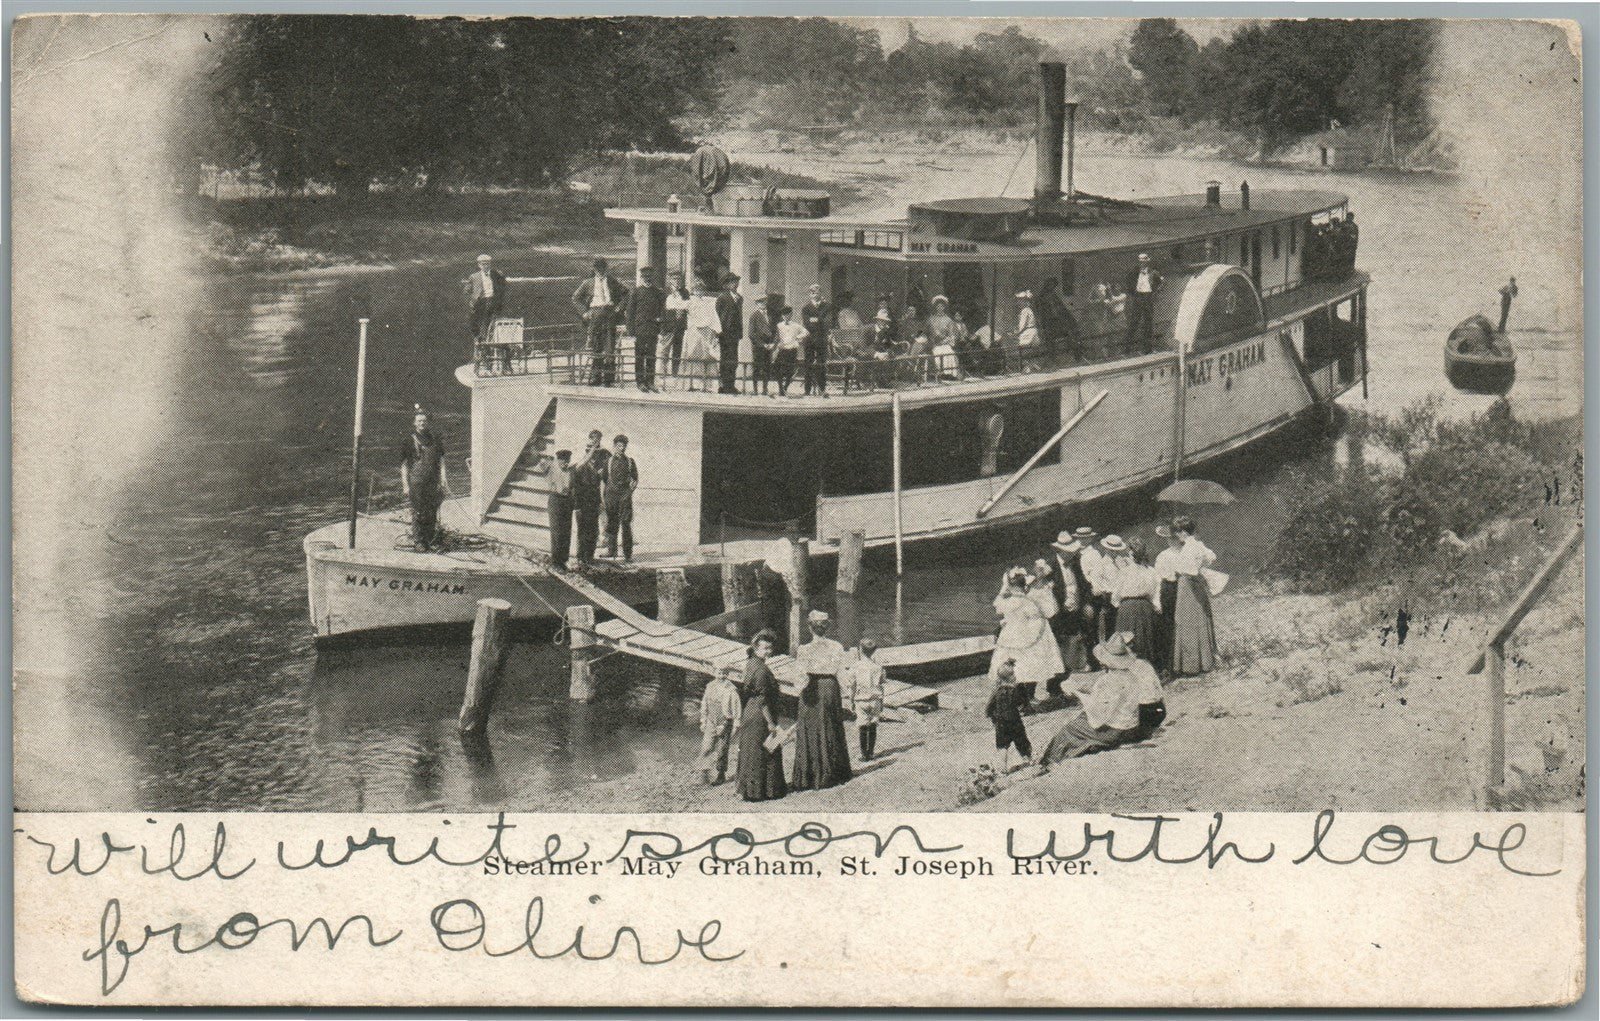 MAY GRAHAM
MAY GRAHAM
MAY GRAHAM
will write soon with love
Steamer May Graham, St. Joseph River.
from Olive.